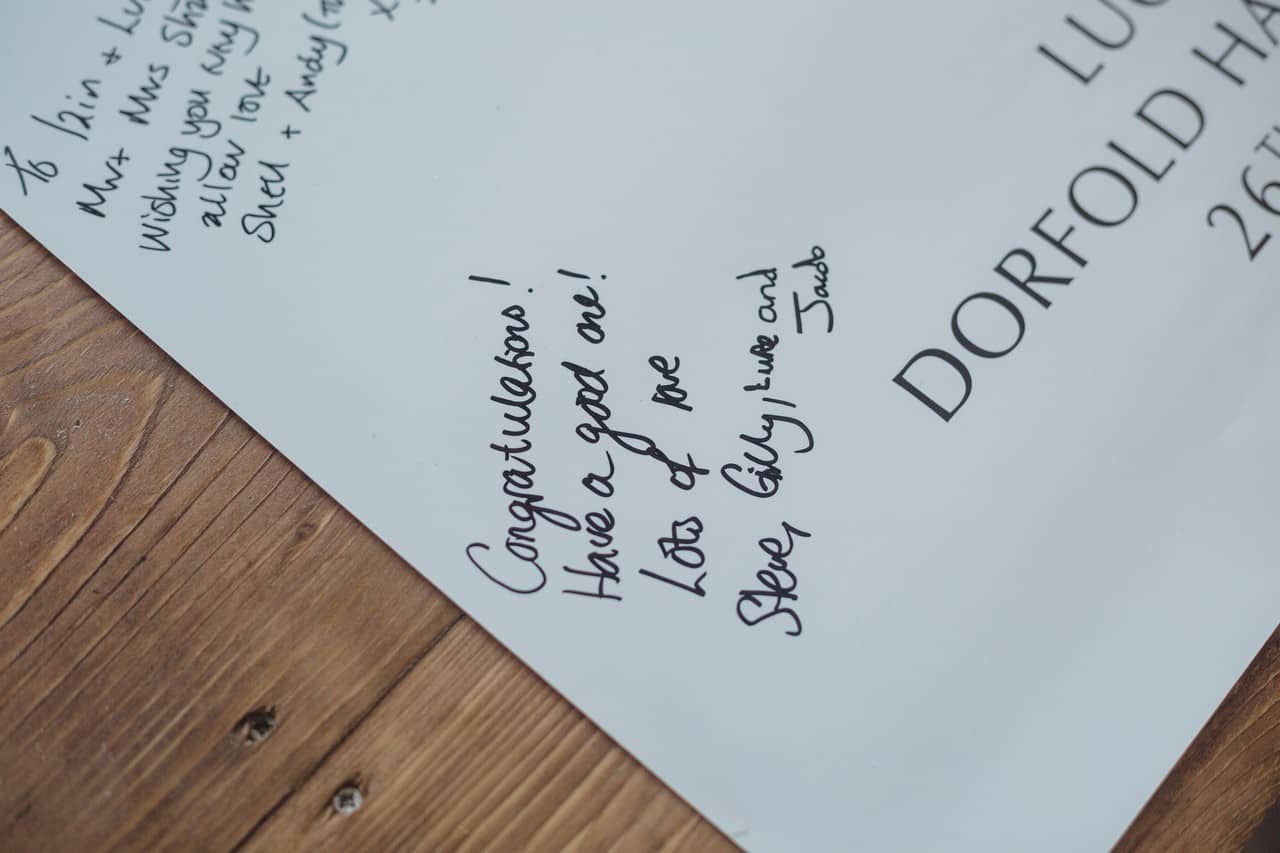 To Iain + Lu
Mr + Mrs Sha
Wishing you
all our love
Shell + Andy (
x
Congratulations!
Have a good one!
Lots of love
Steve, Gilly, Luke and
Jacob
LU
DORFOLD HA
26T